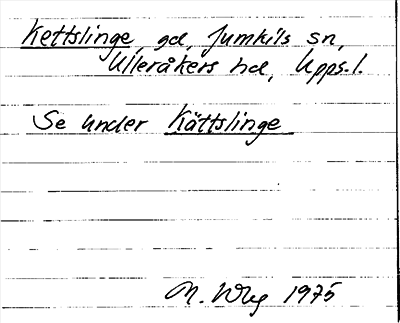 Kettslinge, gd, Jumkils sn,
Ulleråkers hd, Upps.l.
Se under Kättslinge
1975